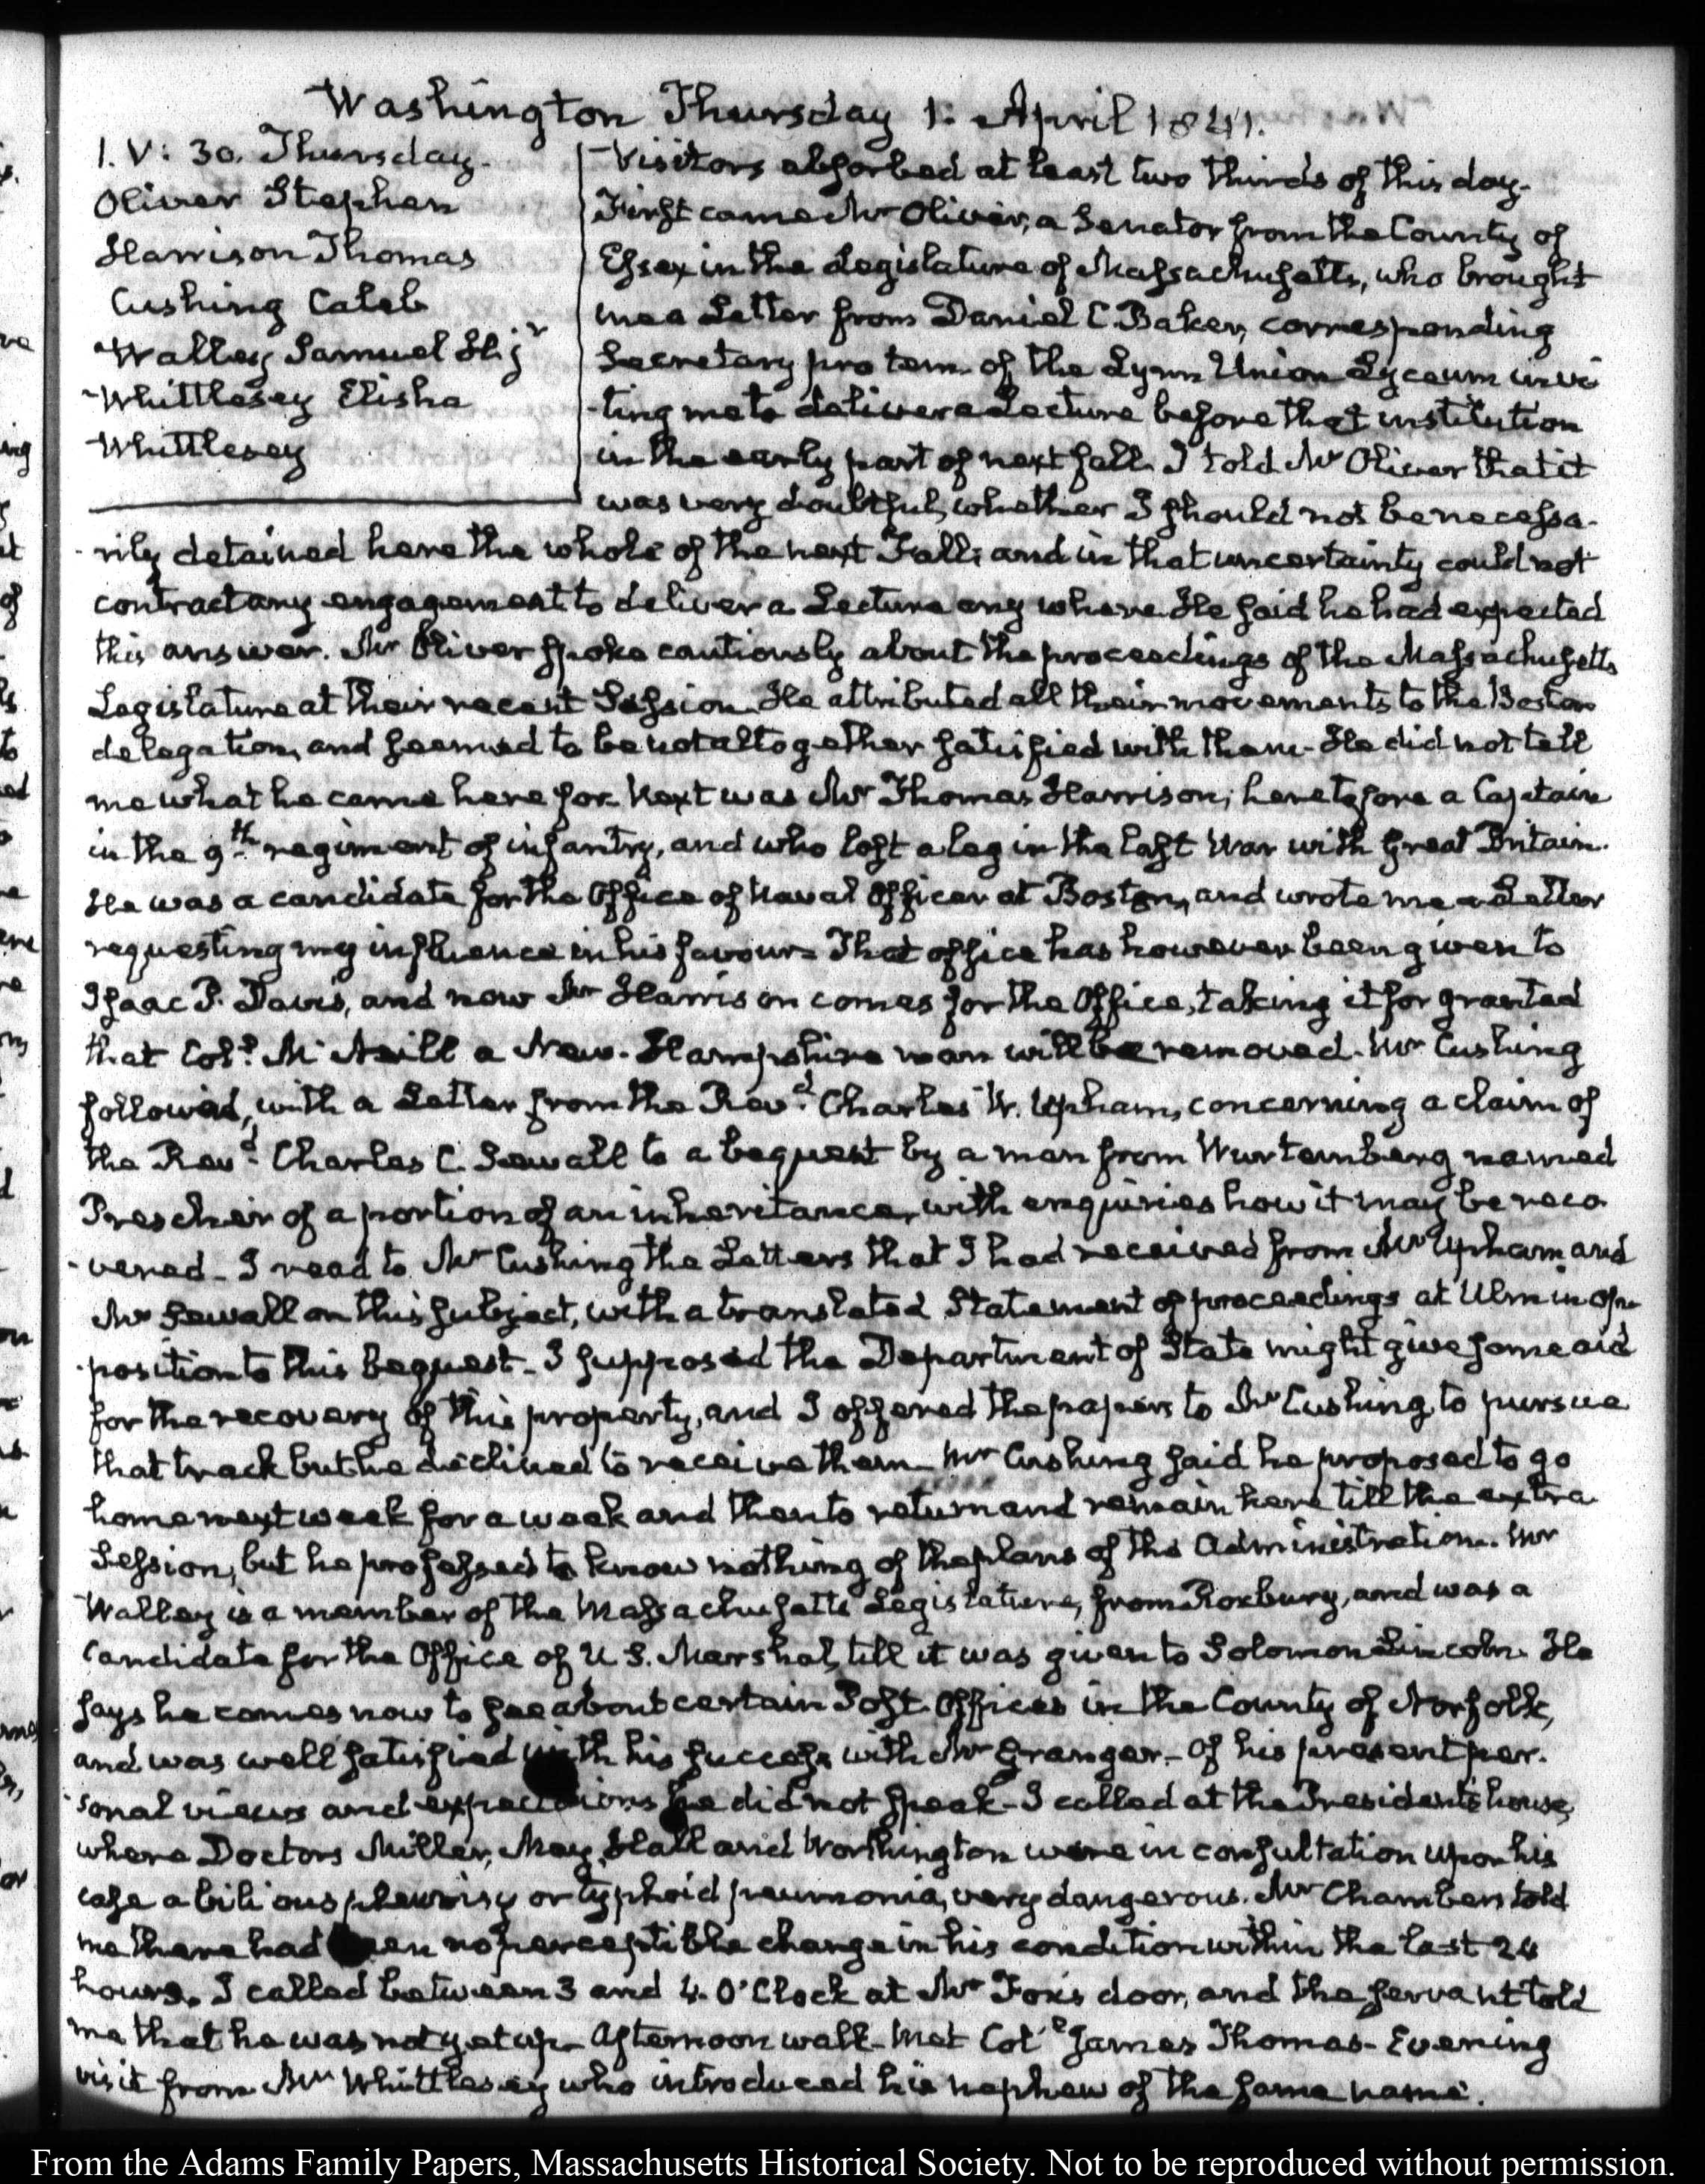 Washington Thursday 1. April 1841.
1. V: 30. Thursday.
Oliver Stephen
Harrison Thomas
Cushing Caleb
Walley Samuel H jr
Whittlesey Elisha
Whittlesey
Visitors absorbed at least two thirds of this day.
First came Mr Oliver, a Senator from the County of
Essex in the Legislature of Massachusetts, who brought
me a Letter from Daniel C Baker, corresponding
Secretary pro tem. of the Lynn Union Lyceum invi
-ting me to deliver a Lecture before that institution
in the early part of next fall. I told Mr Oliver that it
was very doubtful, whether I should not be necessa-
-rily detained here the whole of the next Fall; and in that uncertainty could not
contract any engagement to deliver a Lecture any where. He said he had expected
this answer. Mr Oliver spoke cautiously about the proceedings of the Massachusetts
Legislature at their recent Session. He attributed all their movements to the Boston
delegation, and seemed to be not altogether satisfied with them. He did not tell
me what he came here for. Next was Mr Thomas Harrison; heretofore a Captain
in the 9th regiment of infantry, and who lost a leg in the last War with Great Britain.
He was a candidate for the Office of Naval Officer at Boston, and wrote me a Letter
requesting my influence in his favour. That office has however been given to
Isaac P. Davis, and now Mr Harrison comes for the Office, taking it for granted
that Coll. McNeill a New-Hampshire man will be removed. Mr Cushing
followed, with a Letter from the Revd. Charles W. Upham, concerning a claim of
the Revd. Charles C. Sewall to a bequest by a man from Wurtemberg named
Prescher of a portion of an inheritance, with enquiries how it may be reco
-vered - I read to Mr Cushing the Letters that I had received from Mr Upham and
Mr Sewall on this subject, with a translated Statement of proceedings at Ulm in op-
-position to this bequest - I supposed the Department of State might give some aid
for the recovery of this property, and I offered the papers to Mr Cushing, to pursue
that track but he declined to receive them - Mr Cushing said he proposed to go
home next week for a week and then to return and remain here till the extra
Session, but he professed to know nothing of the plans of the Administration. Mr
Walley is a member of the Massachusetts Legislature, from Roxbury, and was a
Candidate for the Office of U S. Marshal, till it was given to Solomon Lincoln. He
says he comes now to see about certain Post Offices in the County of Norfolk,
and was well satisfied with his success with Mr Granger - Of his present per-
-sonal views and expectations he did not speak - I called at the President's house,
where Doctors Miller, May, Hall and Worthington were in consultation upon his
case a bilious pleurisy or typhoid pneumonia, very dangerous. Mr Chambers told
me there had been no perceptible change in his condition within the last 24
hours. I called between 3 and 4. O'Clock at Mr Fox's door, and the servant told
me that he was not yet up - Afternoon walk - Met Coll James Thomas - Evening
visit from Mr Whittlesey who introduced his nephew of the same name.
From the Adams Family Papers, Massachusetts Historical Society. Not to be reproduced without permission.